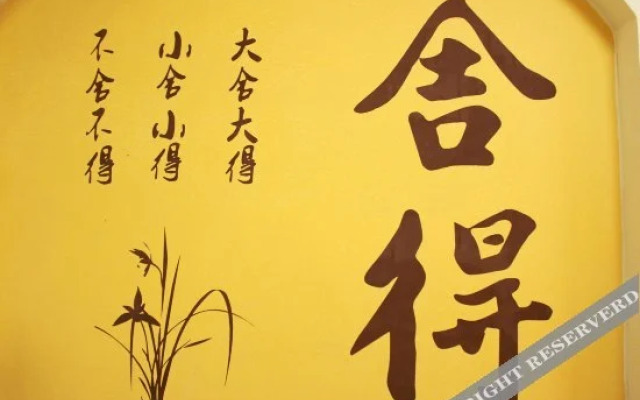 舍得
大舍大得
小舍小得
不舍不得
RIGHT RESERVERD